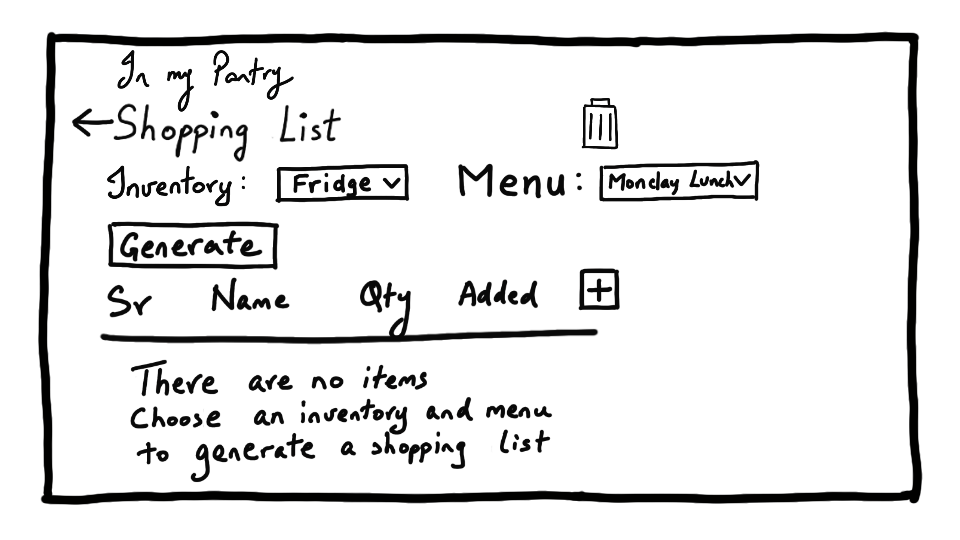 In my Pantry
Shopping List
Inventory: Fridge Menu: Monday Lunch
Generate
Sr Name Qty Added
There are no items
Choose an inventory and menu
to generate a shopping list